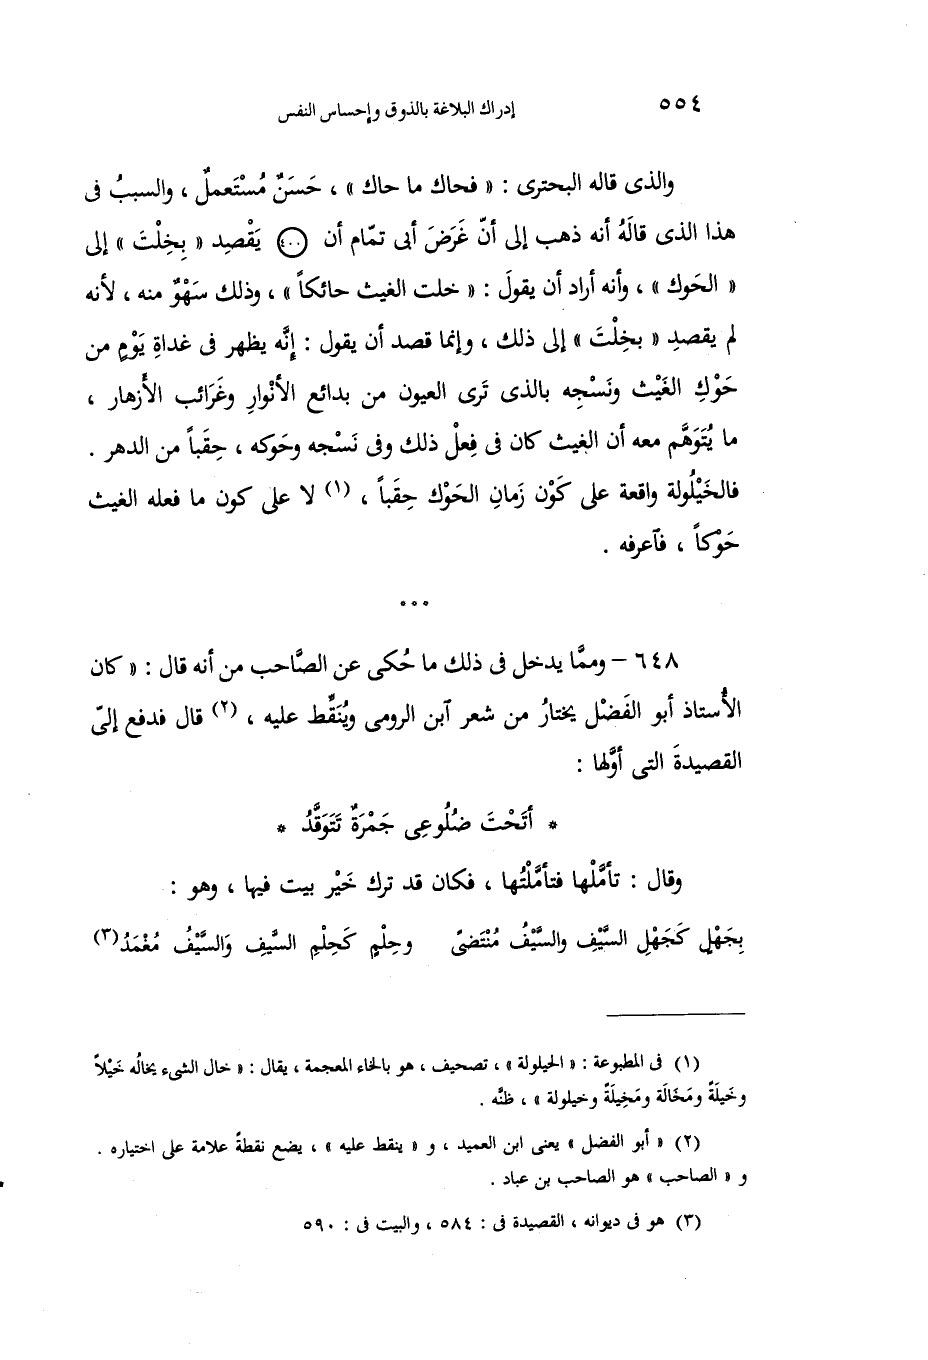 ٥٥٤
إدراك البلاغة بالذوق وإحساس النفس
والذى قاله البحترى : « فحاك ما حاك » ، حَسَنٌ مُسْتَعملٌ ، والسببُ فى
هذا الذى قالَهُ أنه ذهب إلى أنّ غَرَضَ أبى تمّام أن يَقْصِد « بِخِلْتَ » إلى
« الحَوك » ، وأنه أراد أن يقولَ : « خلت الغيث حائكاً » ، وذلك سَهْوٌ منه ، لأنه
لم يقصدِ « بخِلْتَ » إلى ذلك ، وإنما قصد أن يقول : إنَّه يظهر فى غداةِ يَوْمٍ من
حَوْكِ الغَيْث ونَسْجِه بالذى تَرى العيون من بدائع الأنْوارِ وغَرَائب الأَزهار ،
ما يُتَوَهَّم معه أن الغيث كان فى فِعلْ ذلك وفى نَسْجه وحَوكه ، حِقَباً من الدهر .
فالخَيْلُولة واقعة على كَوْن زَمانِ الحَوْك حِقَباً ، (١) لا على كون ما فعله الغيث
حَوْكاً ، فآعرفه .
٦٤٨ – وممَّا يدخل فى ذلك ما حُكى عن الصَّاحب من أنه قال : « كان
الأُستاذ أبو الفَضْل يختارُ من شعر آبن الرومى ويُنَقِّط عليه ، (٢) قال فدفع إلىّ
القصيدةَ التى أوَّلها :
* أتَحْتَ ضُلُوعِى جَمْرَةٌ تَتَوَقَّدُ *
وقال : تأمَّلْها فتأمَّلْتُها ، فكان قد ترك خَيْر بيت فيها ، وهو :
بِجَهْلٍ كَجَهْلِ السَّيْفِ والسَّيْفُ مُنْتَضىً وحِلْمٍ كَحِلْمِ السَّيفِ وَالسَّيْفُ مُغْمَدُ (٣)
(١) فى المطبوعة : « الحيلولة » ، تصحيف ، هو بالخاء المعجمة ، يقال : « خال الشىء يخالُه خَيْلاً
وخَيلَةً ومَخَالَة ومَخِيلَةً وخيلولة » ، ظنَّه .
(٢) « أبو الفضل » يعنى ابن العميد ، و « ينقط عليه » ، يضع نقطةً علامة على اختياره .
و « الصاحب » هو الصاحب بن عباد .
(٣) هو فى ديوانه ، القصيدة فى : ٥٨٤ ، والبيت فى : ٥٩٠